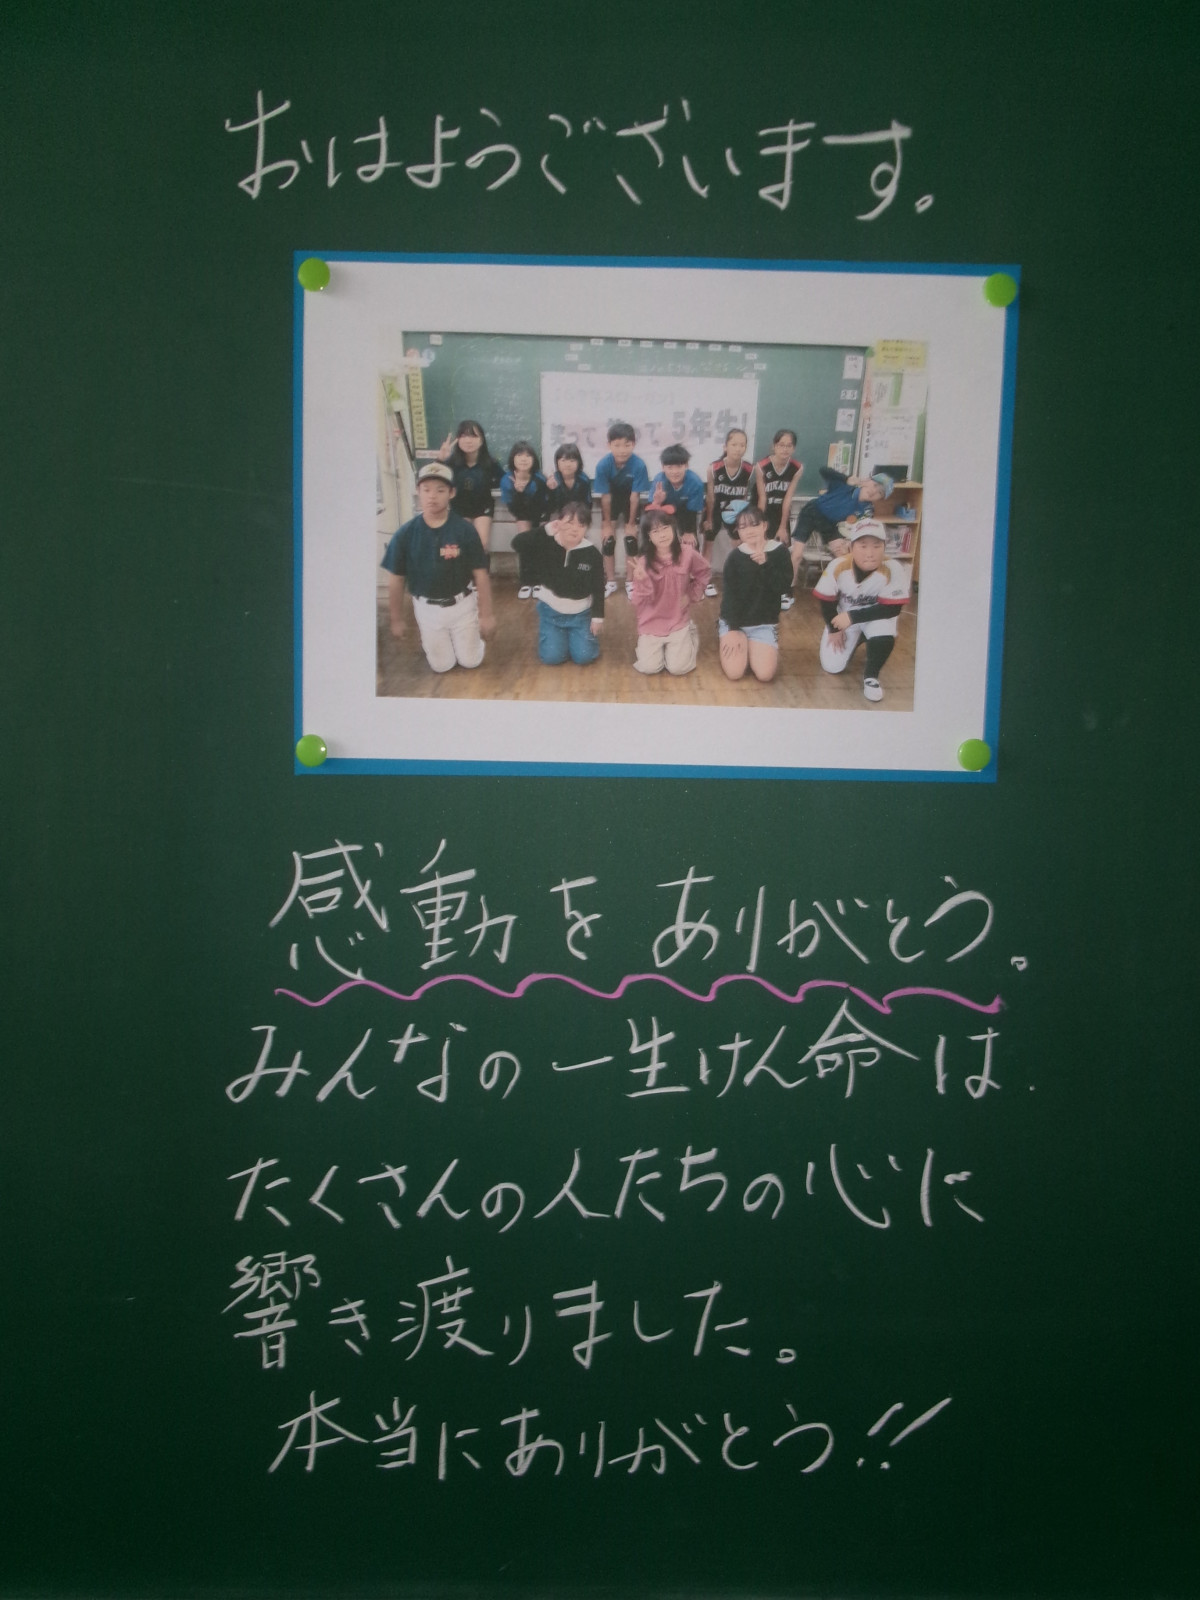 おはようございます。
5年生!
MIKAN
感動をありがとう。
みんなの一生けん命は
たくさんの人たちの心に
響き渡りました。
本当にありがとう!!